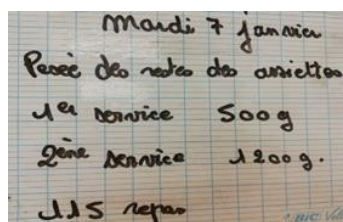 Mardi 7 janvier
Pesée des restes des assiettes
1er service 500g
2ème service 1200g.
115 repas